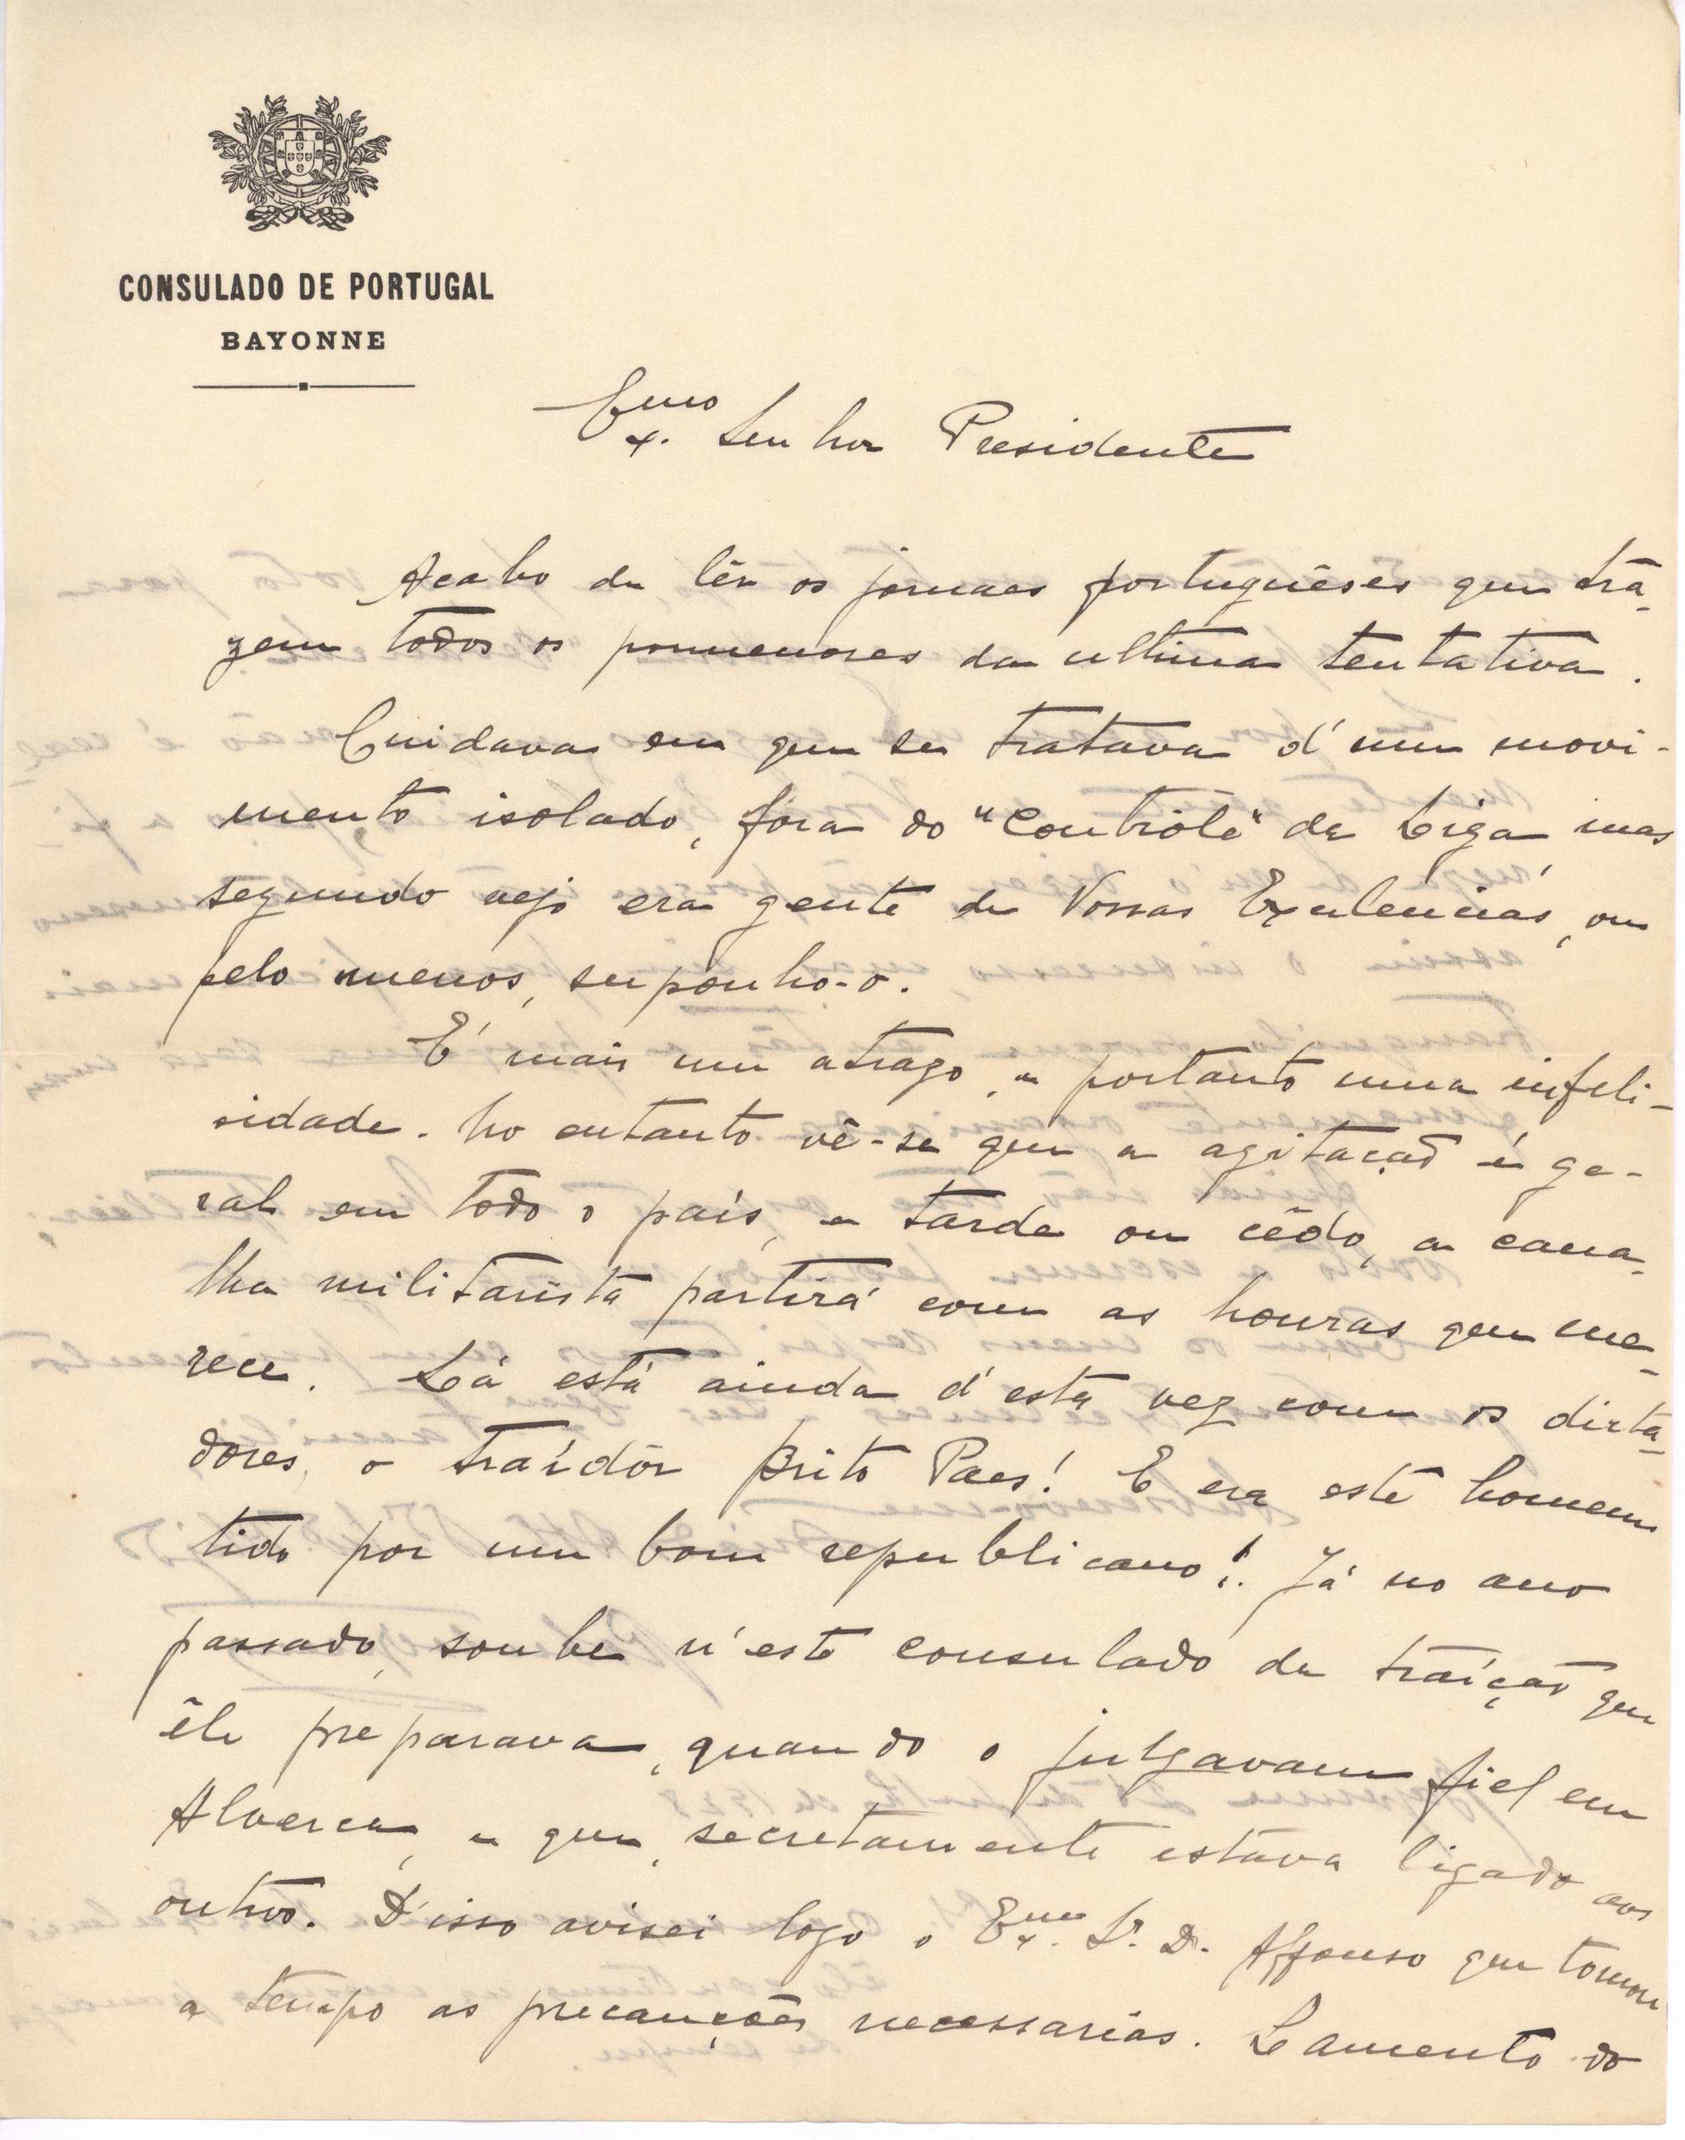 CONSULADO DE PORTUGAL
BAYONNE
Exmo. Senhor Presidente
Acabo de lêr os jornaes portuguêses que trá-
zem todos os pormenores da ultima tentativa.
Cuidava eu que se tratava d'um movi-
mento isolado, fóra do "Contrôle" da Liga, mas
segundo vejo era gente de Vossas Excelencias, ou
pelo menos, suponho-o.
É mais um atrazo, e portanto uma infeli-
cidade. No entanto vê-se que a agitação é ge-
ral em todo o país, e tarde ou cêdo, a cana-
lha militarista partirá com as honras que me-
rece. Lá está ainda d'esta vez com os dicta-
dores, o traídôr Brito Paes! E era este homem
tido por um bom republicano!. Já no ano
passado, soube n'este consulado da traíção que
êle preparava, quando o julgavam fiel em
Alverca, e que, secretamente estava ligado aos
outros. D'isso avisei logo o Exmo. Sr. Dr. Affonso que tomou
a tempo as precauções necessarias. Lamento do